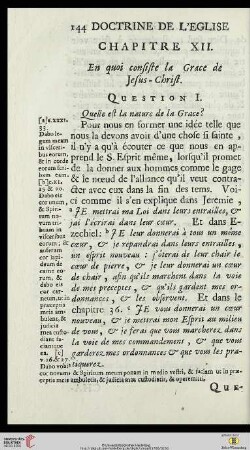 144 DOCTRINE DE L'EGLISE
CHAPITRE XII.
En quoi consiste la Grace de
Jesus-Christ.
QUESTION I.
Quelle est la nature de la Grace?
Pour nous en former une idée telle que
nous la devons avoir d'une chose si sainte,
il n'y a qu'à écouter ce que nous en ap-
prend le S. Esprit même, lorsqu'il promet
de la donner aux hommes comme le gage
& le nœud de l'alliance qu'il veut contra-
cter avec eux dans la fin des tems. Voi-
ci comme il s'en explique dans Jeremie,
JE mettrai ma Loi dans leurs entrailles, &
jai l'écrirai dans leur cœur. Et dans E-
zechiel: JE leur donnerai à tous un même
cœur, & je répandrai dans leurs entrailles,
un esprit nouveau: j'ôterai de leur chair le
cœur de pierre, & je leur donnerai un cœur
de chair, afin qu'ils marchent dans la voie
de mes preceptes, & qu'ils gardent mes or-
donnances, & les observent. Et dans le
chapitre 36. JE vous donnerai un cœur
nouveau, & je mettrai mon Esprit au milieu
de vous, & je ferai que vous marcherez dans
la voie de mes commandement, & que vous
garderez mes ordonnances & que vous les pra-
tiquerez.
33.
Dabo le-
gem meam
in visceri-
bus eorum,
& in corde
eorum scri-
bam eam.
Dabo vobis
cor novum & spiritum meum ponam in medio vestri, & faciam ut in præ-
ceptis meis ambuletis, & judicia mea custodiatis, & operemini.
QUE-